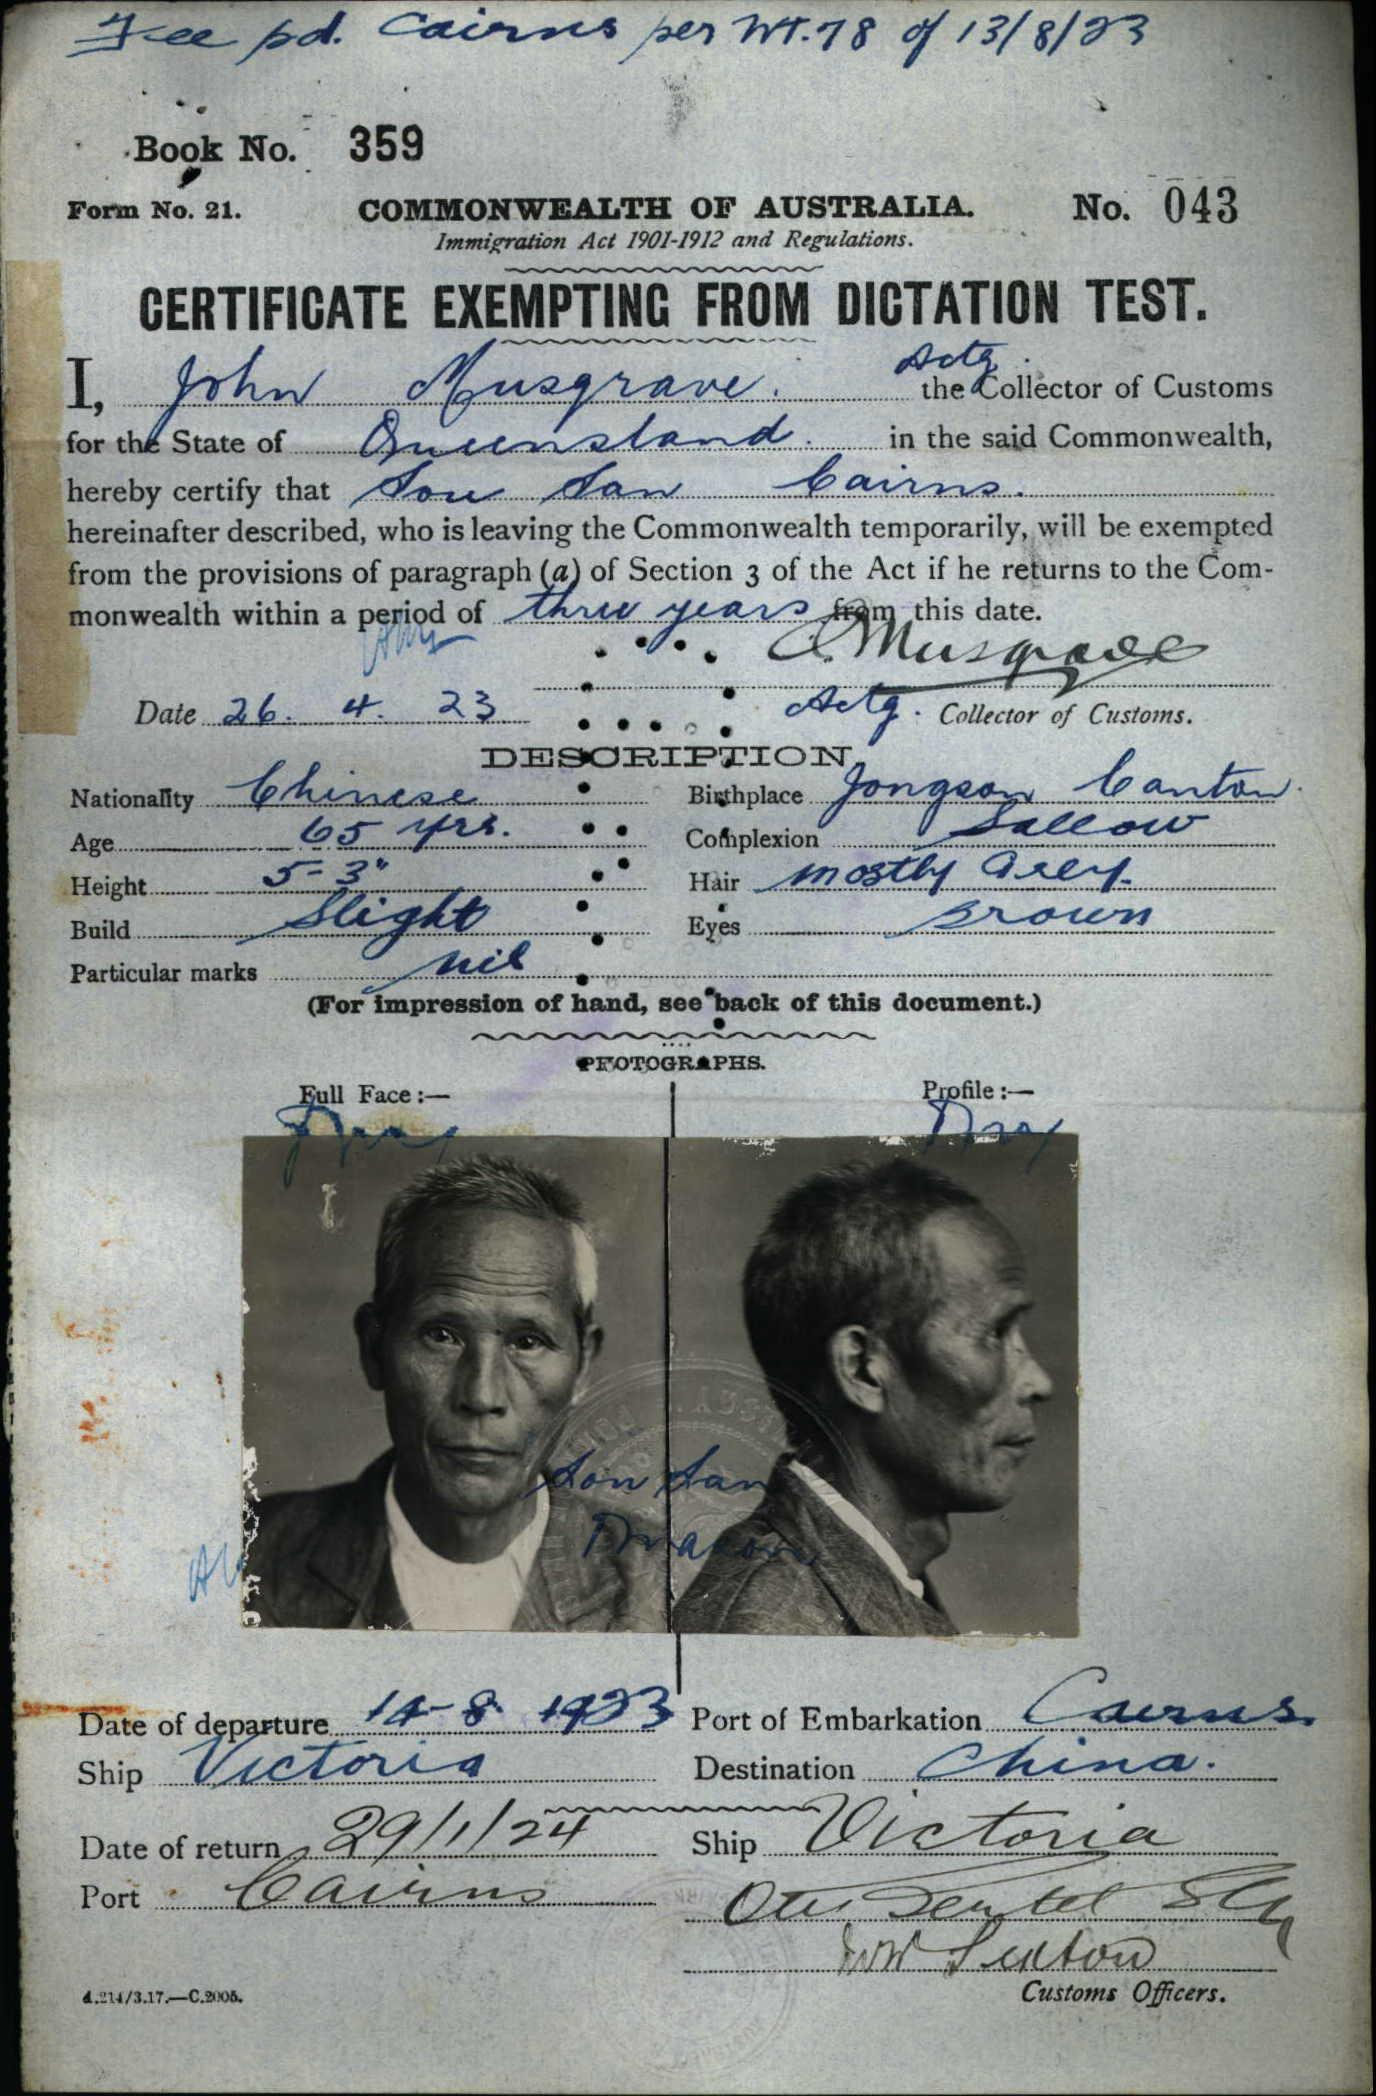 Fee pd. Cairns per Wt. 78 of 13/8/23
Book No. 359
Form No. 21. COMMONWEALTH OF AUSTRALIA. No. 043
Immigration Act 1901-1912 and Regulations.
CERTIFICATE EXEMPTING FROM DICTATION TEST.
Actg.
I, John Musgrave. the Collector of Customs
for the State of Queensland. in the said Commonwealth,
hereby certify that Sou San Cairns.
hereinafter described, who is leaving the Commonwealth temporarily, will be exempted
from the provisions of paragraph (a) of Section 3 of the Act if he returns to the Com-
monwealth within a period of three years from this date.
Musgrave
Date 26. 4. 23 Actg. Collector of Customs.
DESCRIPTION
Nationality Chinese Birthplace Jongson Canton.
Age 65 yrs. Complexion Sallow
Height 5-3" Hair mostly Grey.
Build Slight Eyes Brown
Particular marks nil
(For impression of hand, see back of this document.)
PHOTOGRAPHS.
Full Face:— Profile:—
Sou San
Date of departure 14-8-1923 Port of Embarkation Cairns.
Ship Victoria Destination China.
Date of return 29/1/24 Ship Victoria
Port Cairns
Sexton
Customs Officers.
d.214/3.17.—C.2005.